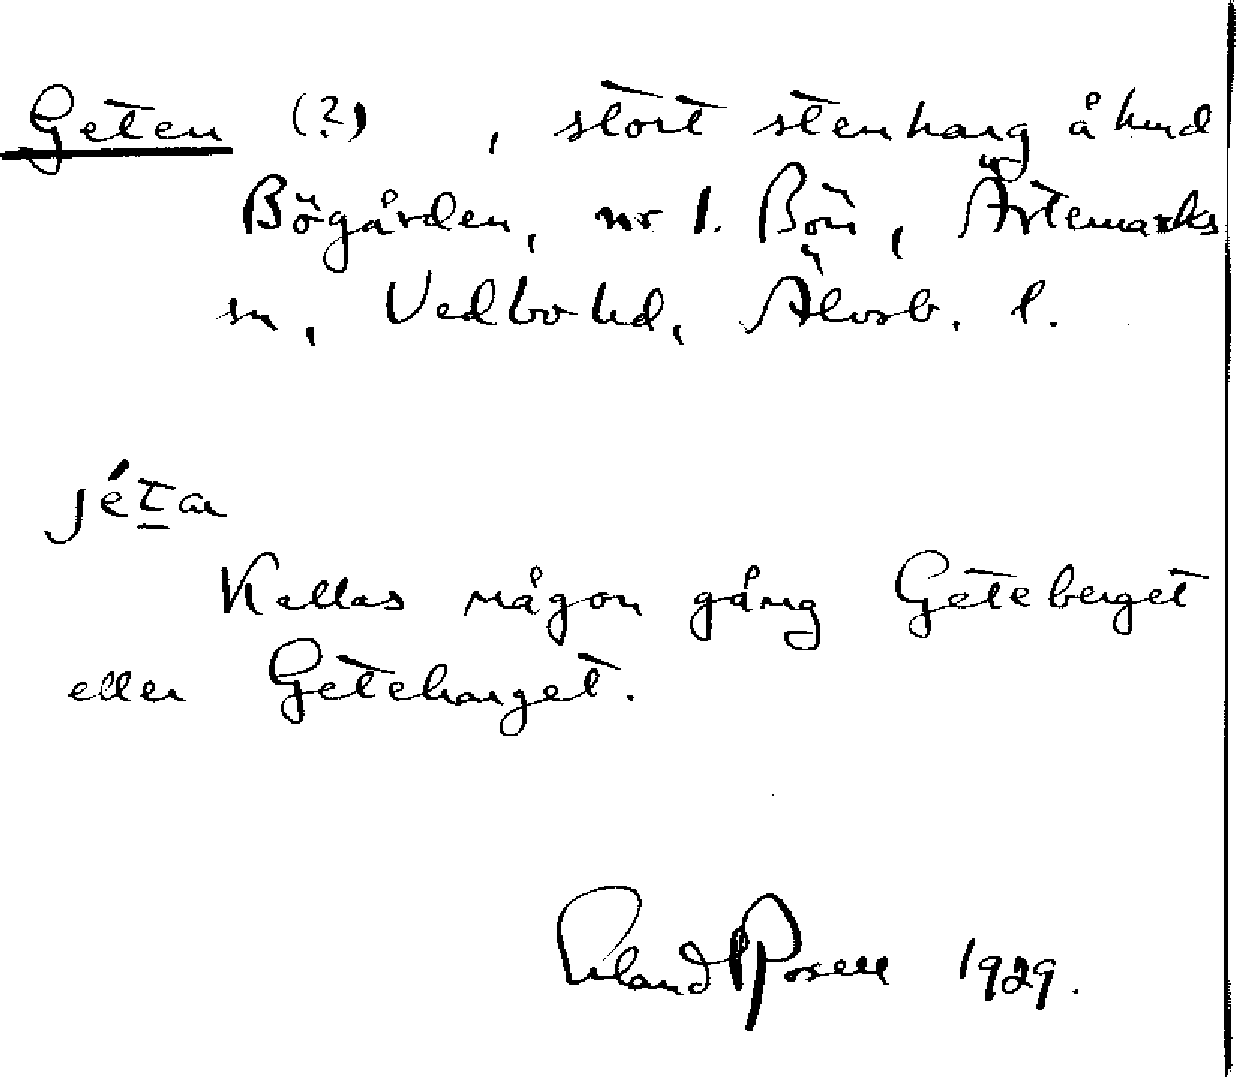 Geten (?) , stort stenharg å hmd
Bögården, nr 1. Bön, Ärtemarks
sn, Vedbo hd, Älvsb. l.
jétan
Kallas någon gång Geteberget
eller Geteharget.
Erland Rosell 1929.